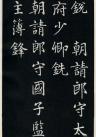 銑　朝請郎守太
府少卿銑
朝請郎守國子監
主簿鋒